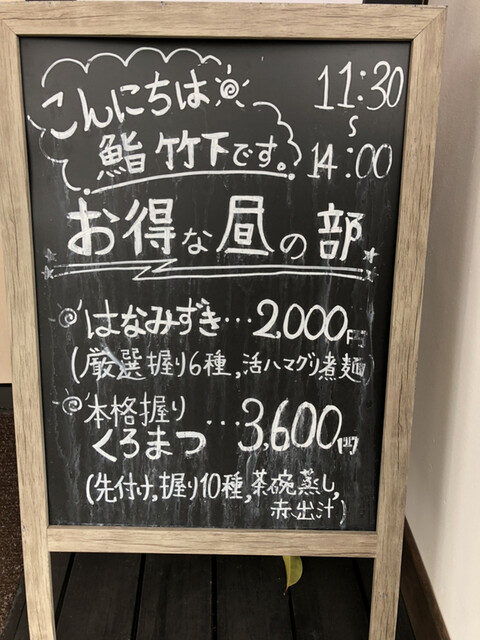 こんにちは
鮨 竹下です。
11:30
~
14:00
お得な昼の部
はなみずき…2000円
(厳選握り6種,活ハマグリ煮麺)
本格握り
くろまつ…3,600円
(先付け,握り10種,茶碗蒸し,
赤出汁)